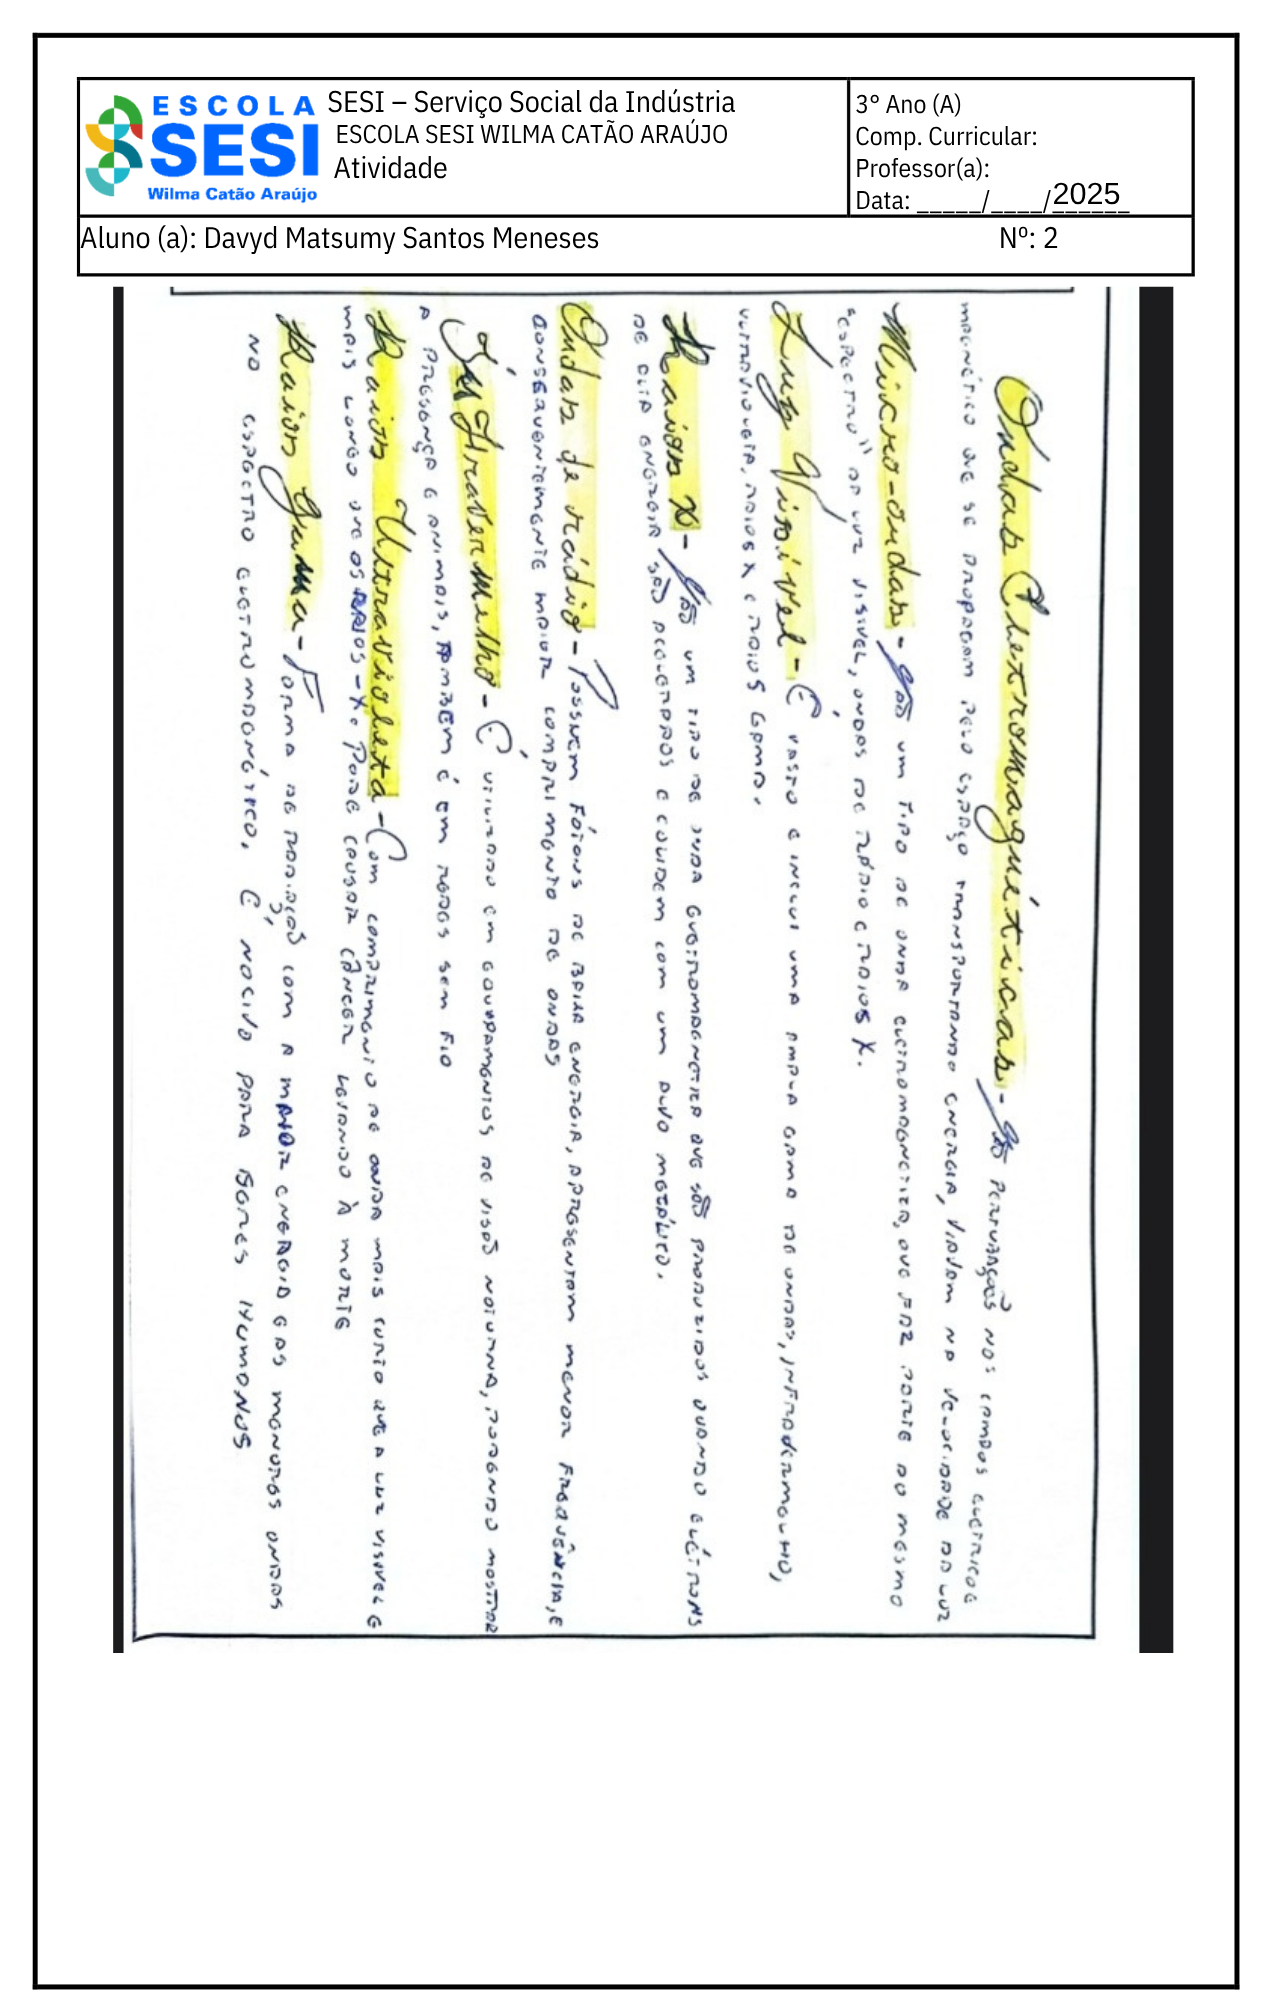 ESCOLA
SESI
Wilma Catão Araújo
SESI – Serviço Social da Indústria
ESCOLA SESI WILMA CATÃO ARAÚJO
Atividade
3° Ano (A)
Comp. Curricular:
Professor(a):
Data: _____/____/2025
Aluno (a): Davyd Matsumy Santos Meneses Nº: 2
Ondas Eletromagnéticas - São perturbações nos campos elétrico e
magnético que se propagam pelo espaço transportando energia, viajam na velocidade da luz
Micro-ondas - São um tipo de onda eletromagnetica, que faz parte do mesmo
"espectro" da luz visivel, ondas de rádio e raios X.
Luz Visível - É vasto e inclui uma ampla gama de ondas, infravermelho,
ultravioleta, raios X e raios gama.
Raios X - São um tipo de onda eletromagnetica que são produzidos quando elétrons
de alta energia são acelerados e colidem com um alvo metálico.
Ondas de rádio - Possuem fótons de baixa energia, apresentam menor frequência, e
consequentemente maior comprimento de ondas
Infravermelho - É utilizado em equipamentos de visão noturna, podendo mostrar
a presença e animais, também é em redes sem fio
Raios Ultravioleta - Com comprimento de onda mais curto que a luz visivel e
mais longo que os raios-X. Pode causar câncer levando à morte
Raios Gama - Forma de radiação com a maior energia e as menores ondas
no espectro eletromagnético. É nocivo para seres humanos